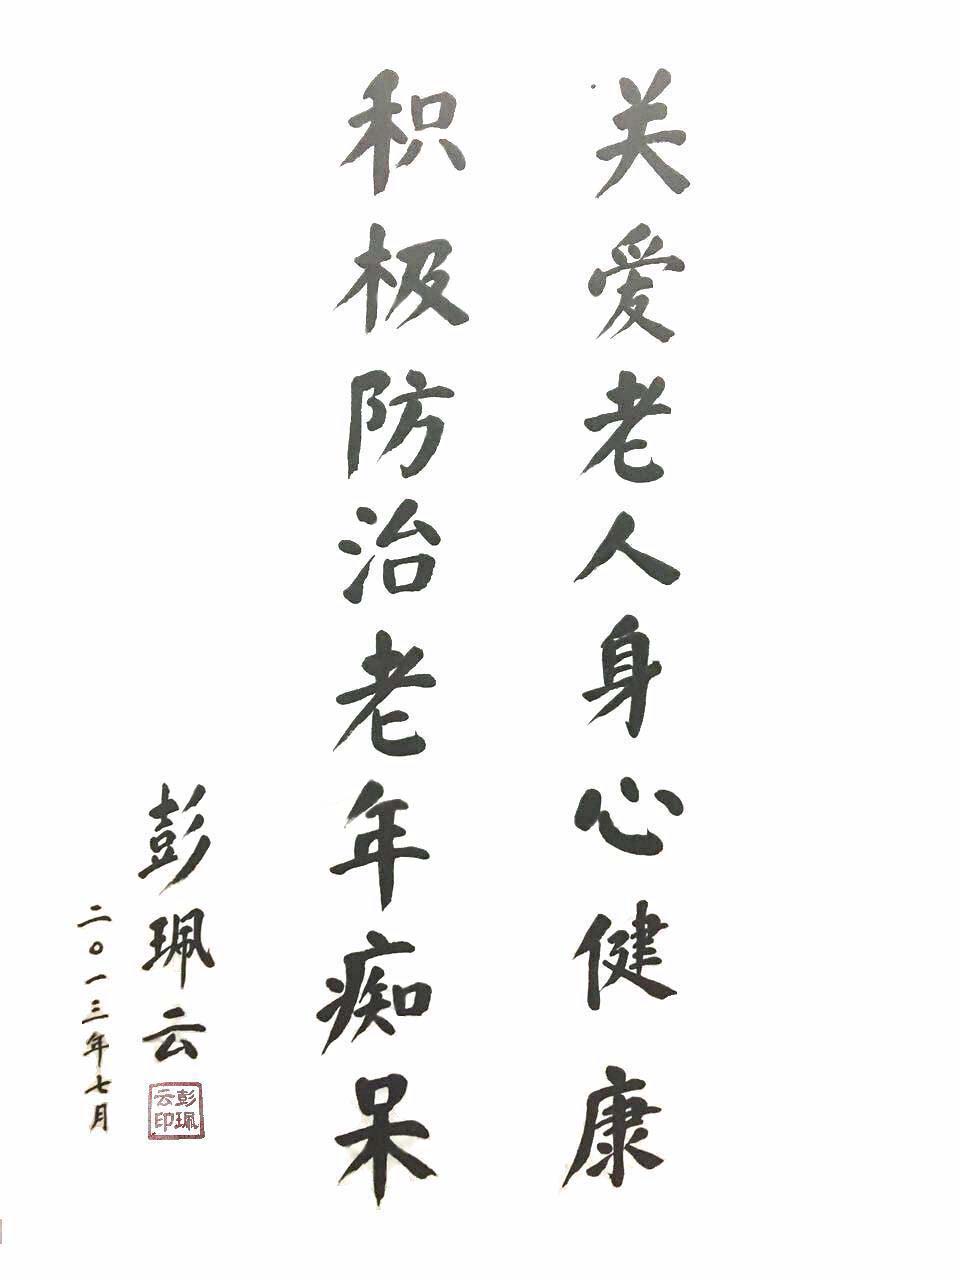 关爱老人身心健康
积极防治老年痴呆
彭珮云
二〇一三年七月
彭珮云印